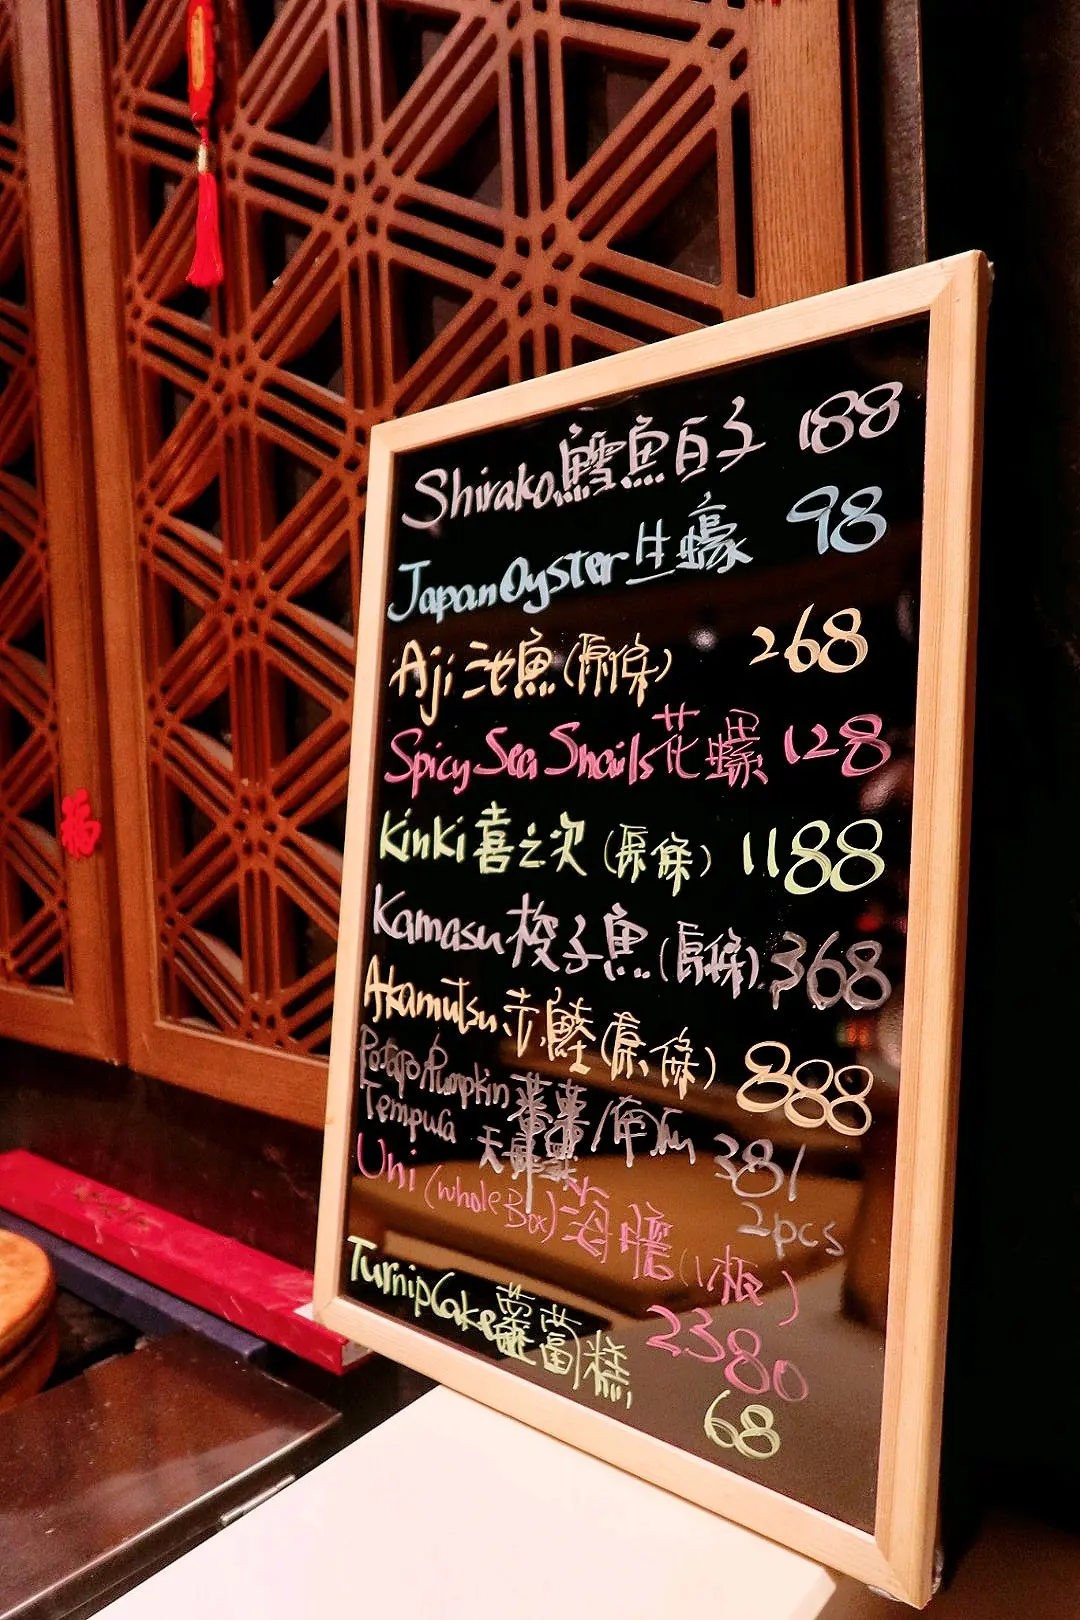 Shirako鱈魚白子 188
Japan Oyster 生蠔 98
Aji 池魚(原條) 268
Spicy Sea Snails 花螺 128
Kinki 喜之次(原條) 1188
Kamasu 梭子魚(原條) 368
Akamutsu 赤鯥(原條) 888
Potato/Pumpkin 蕃薯/南瓜
Tempura 天婦羅 38/
2pcs
Uni (whole Box) 海膽(1板)
2380
Turnip Cake 蘿蔔糕
68
福